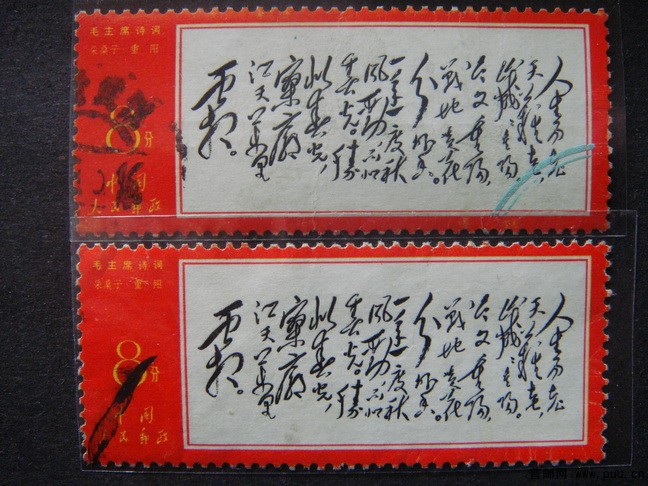 毛主席诗词
采桑子·重阳
8分
中国
人民郵政
人生易老
天難老,
歲歲重陽。
今又重陽,
戰地黄花
分外香。
一年一度秋
風勁,不似
春光。勝
似春光,
寥廓
江天萬里
霜。
毛主席诗词
采桑子·重阳
8分
中国
人民郵政
人生易老
天難老,
歲歲重陽。
今又重陽,
戰地黄花
分外香。
一年一度秋
風勁,不似
春光。勝
似春光,
寥廓
江天萬里
霜。
www.puu.cn